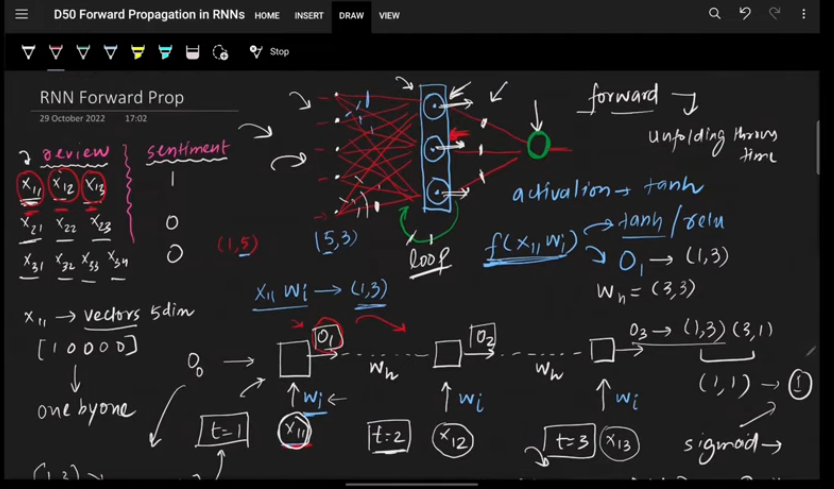 D50 Forward Propagation in RNNs HOME INSERT DRAW VIEW
Stop
RNN Forward Prop
29 October 2022 17:02
review sentiment
x11 x12 x13 1
x21 x22 x23 0
x31 x32 x33 x34 0
(1,5) (5,3)
loop
forward
unfolding throug
time
activation → tanh
f(x11 wi) tanh/relu
O1 → (1,3)
Wh = (3,3)
x11 wi → (1,3)
x11 → vectors 5dim
[1 0 0 0 0]
one by one
O0 O1 Wh O2 Wh O3 → (1,3) (3,1)
(1,1) → 1
wi wi wi
t=1 x11 t=2 x12 t=3 x13
sigmod →